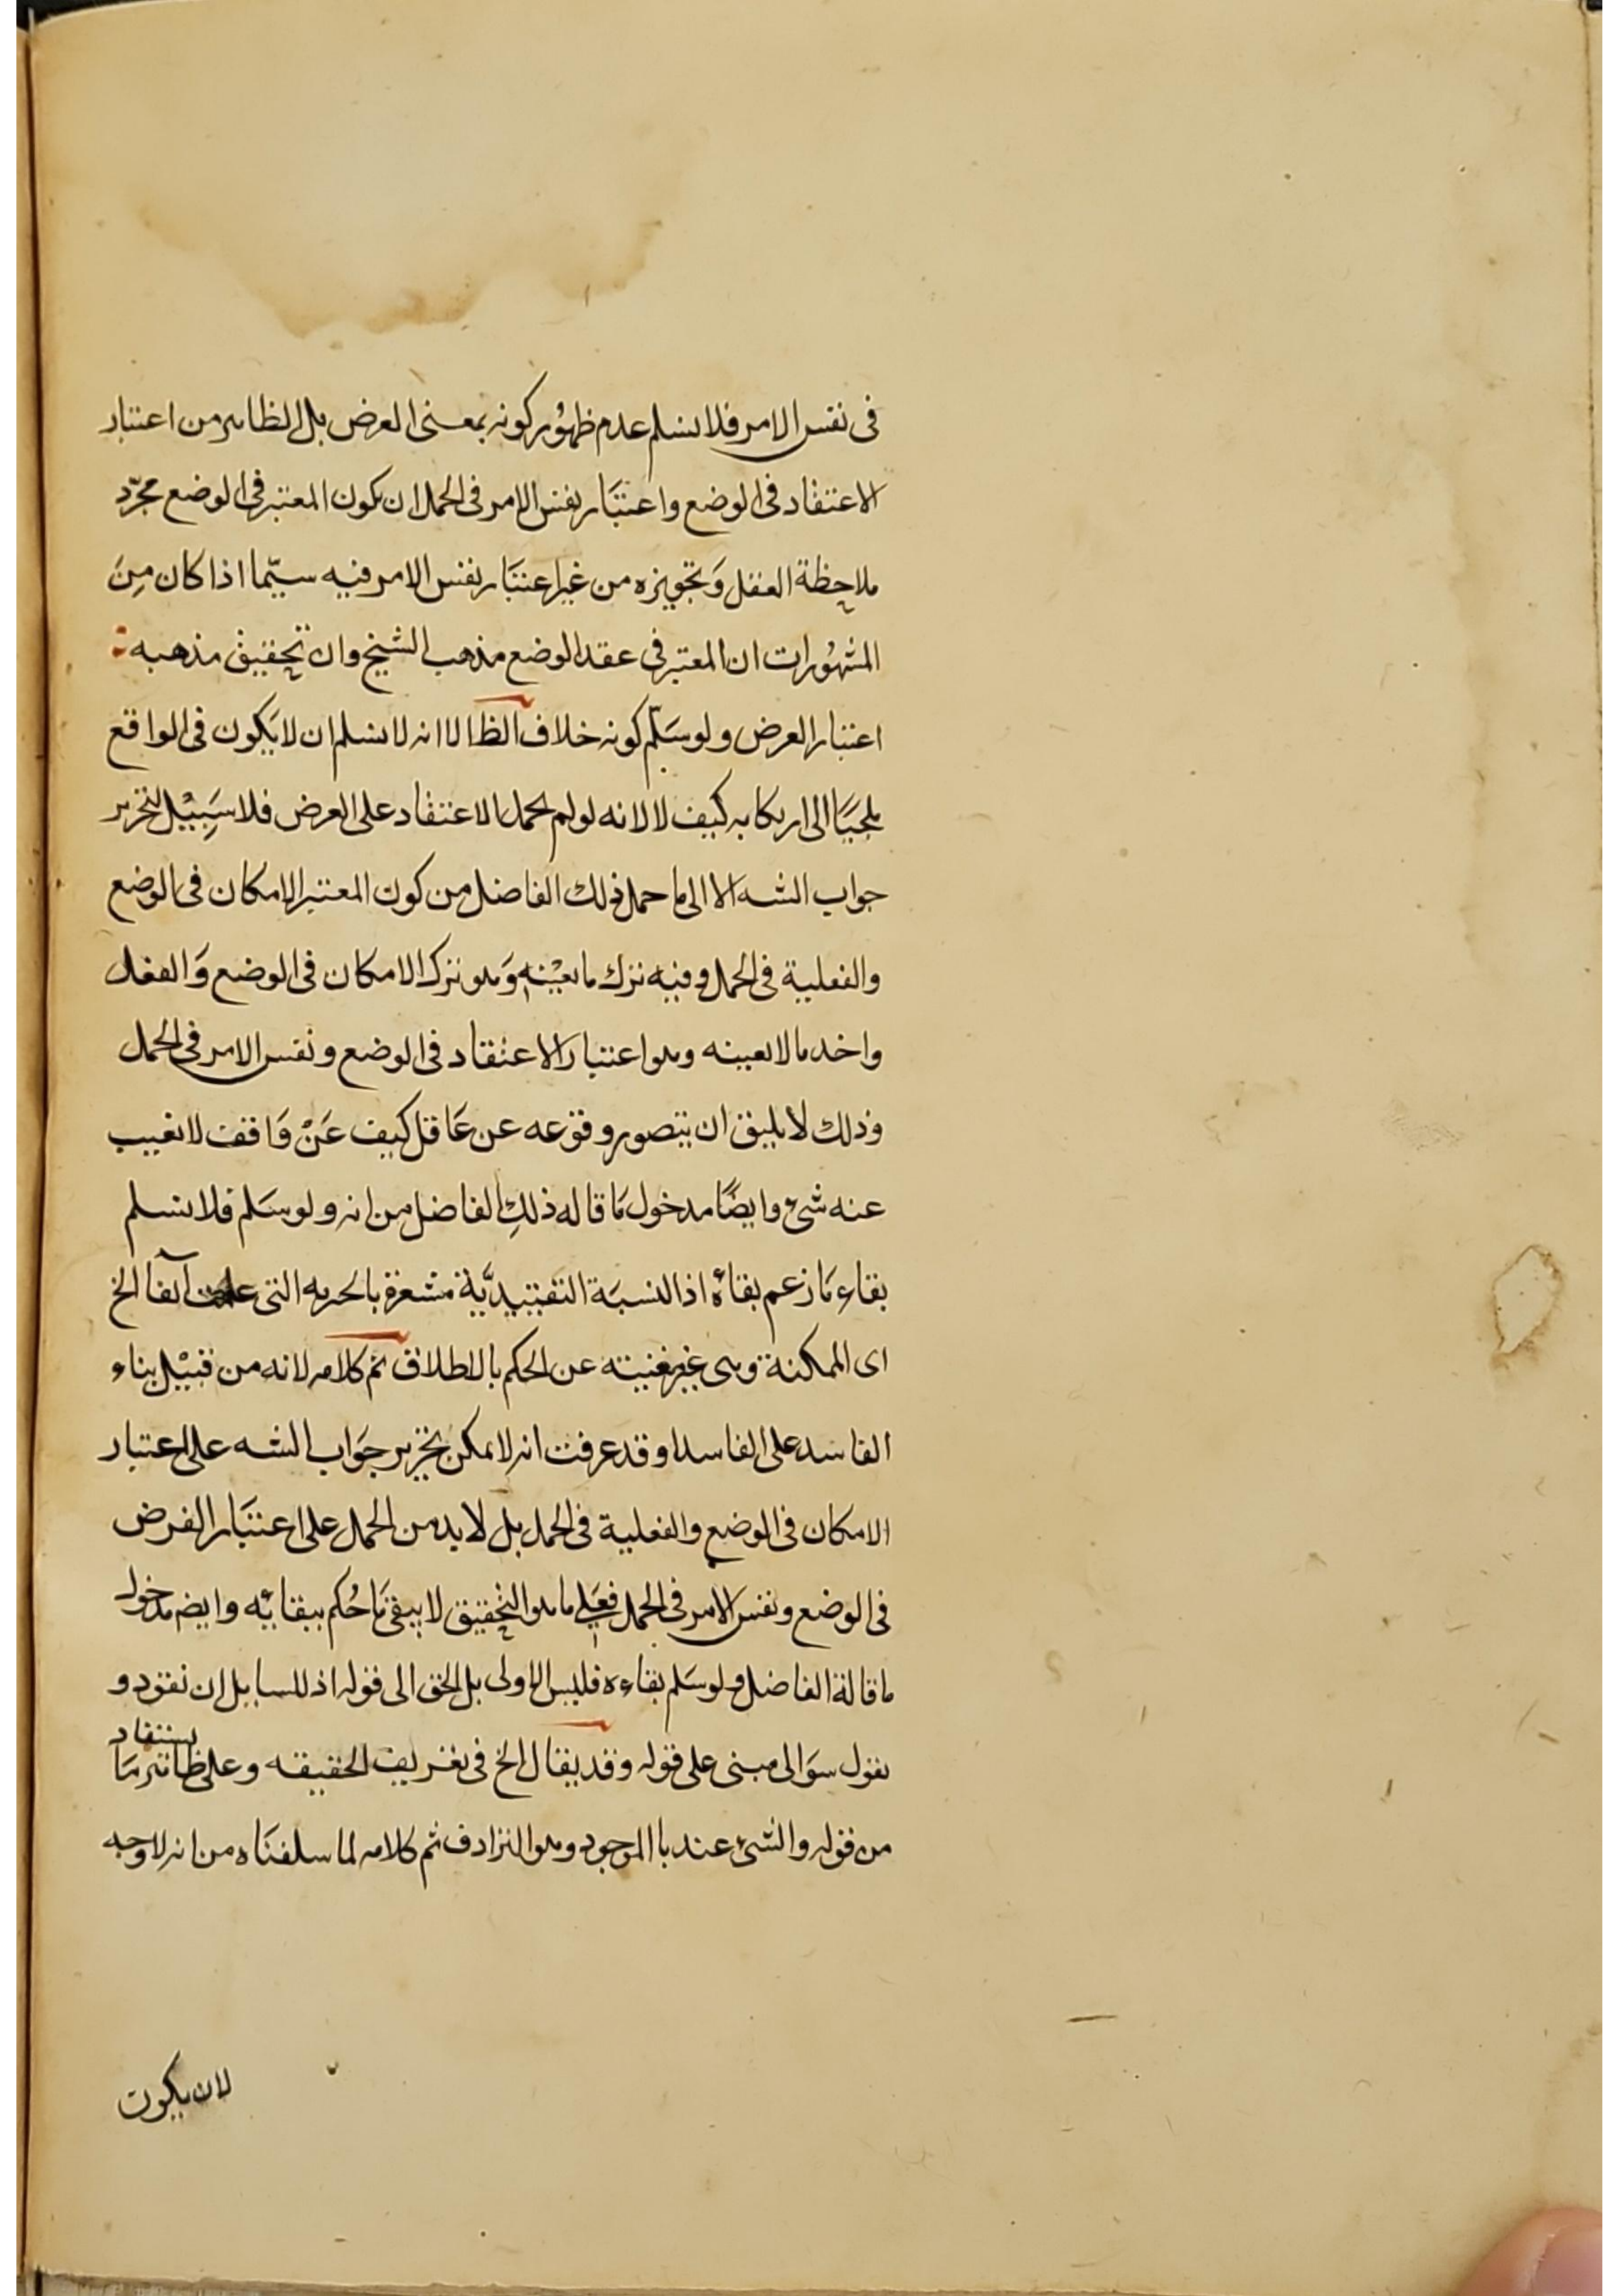 فى نفس الامر فلا نسلم عدم ظهور كونه بمعنى الفرض بل الظاهر من اعتبار
الاعتقاد فى الوضع واعتبار نفس الامر فى الحمل ان يكون المعتبر فى الوضع مجرّد
ملاحظة العقل وَتجويزه من غير اعتبَار نفس الامر فيه سيّما اذا كان مِنَ
المشهُورات ان المعتبر فى عقد الوضع مذهب الشيخ وان تحقيق مذهبه
اعتبار الفرض ولو سَلّم كونه خلاف الظ الا انه لا نسلم ان لا يَكون فى الواقع
ملجيًا الى ارتكابه كيف لا لانه لو لم يحمل الاعتقاد على الفرض فلا سَبِيْل لتحرير
جواب الشبه الا الى ما حمل ذلك الفاضل من كون المعتبر الامكان فى الوضع
والفعلية فى الحمل وفيه ترك ما يعْنيه وَهو ترك الامكان فى الوضع وَالفعل
واخذ ما لا يعينه وهو اعتبار الاعتقاد فى الوضع ونفس الامر فى الحمل
وذلك لا يليق ان يتصور وقوعه عن عَاقل كيف عَنْ وَاقف لا يغيب
عنه شئ وايضًا مدخول مَا قاله ذلِك الفاضل من انه ولو سَلم فلا نسلم
بقاء مَا زعم بقاءُه اذ النسبَة التقييديَّة مشعرة بالحريه التى آنفا الخ
اى الممكنة وهى غير مغنيته عن الحكم بالاطلاق ثم كلامه لانه من قبيْل بناء
الفاسد على الفاسد او قد عرفت انه لا يمكن تحرير جوَاب الشبه على اعتبار
الامكان فى الوضع والفعلية فى الحمل بل لا بد من الحمل على اعتبَار الفرض
فى الوضع ونفس الامر فى الحمل فعَلى ما هو التحقيق لا يبقى مَا حُكم ببقائه وايضا مدخول
ما قالة الفاضل ولو سَلم بقاءه فليس الاولى بل الحق الى قوله اذ للسايل ان نقود و
يقول سوَالى مبنى على قوله وقد يقال الخ فى تعريف الحقيقه وعلى ظاهر مَا يستفاد
من قوله والشئ عند با الموجود وهو الترادف ثم كلامه لما سلفنَاه من انه لا وجه
لان يكون